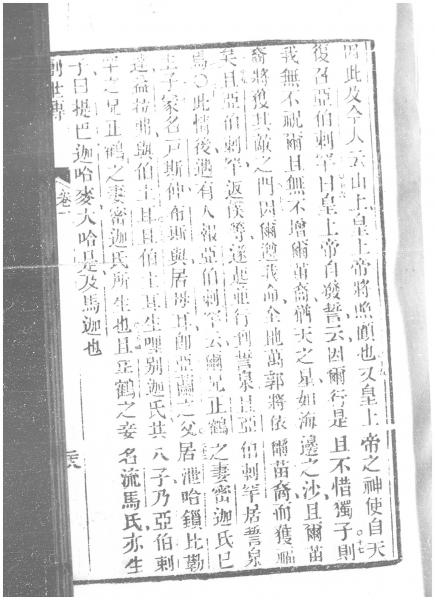 因此及今人云山上皇上帝將瞻顧也又皇上帝之神使自天
復召亞伯剌罕曰皇上帝自發誓云因爾行是且不惜獨子則
我無不祝爾且無不增爾苗裔猶天之星如海邊之沙且爾苗
裔將獲其敵之門因爾遵我命全地萬郭將依爾苗裔而獲福
矣且亞伯剌罕返僕等遂起並行到誓泉且亞伯剌罕居誓泉
焉〇此情後遇有人報亞伯剌罕云爾兄止鶴之妻密迦氏已
生子家名戸斯仲布斯與居母耳即亞蘭之父居泄哈鎖比勒
達益拉弗與伯土耳且伯土耳生哩別迦氏其八子乃亞伯剌
罕之兄止鶴之妻密迦氏所生也且止鶴之妾名流馬氏亦生
子曰提巴迦哈麥大哈是及馬迦也
創世傳
卷一